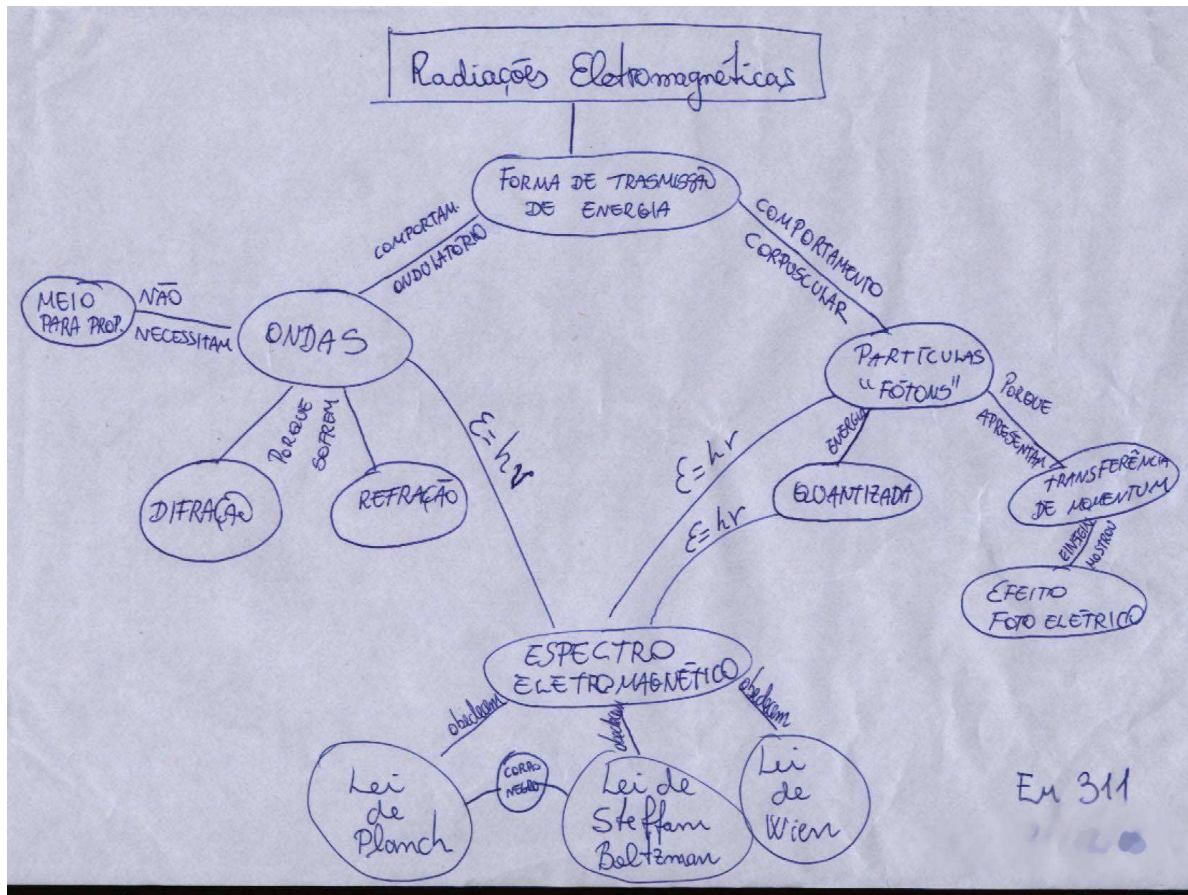 Radiações Eletromagnéticas
FORMA DE TRASMISSÃO
DE ENERGIA
COMPORTAM.
ONDULATÓRIO
COMPORTAMENTO
CORPUSCULAR
MEIO
PARA PROP.
NÃO
NECESSITAM
ONDAS
PARTÍCULAS
"FÓTONS"
PORQUE
SOFREM
DIFRAÇÃO
REFRAÇÃO
E=hν
E=hν
E=hν
ENERGIA
QUANTIZADA
PORQUE
APRESENTAM
TRANSFERÊNCIA
DE MOMENTUM
EINSTEIN
MOSTROU
EFEITO
FOTO ELÉTRICO
ESPECTRO
ELETROMAGNÉTICO
obedecem
obedecem
obedecem
Lei
de
Planch
CORPO
NEGRO
Lei de
Steffann
Boltzman
Lei
de
Wien
EM 311